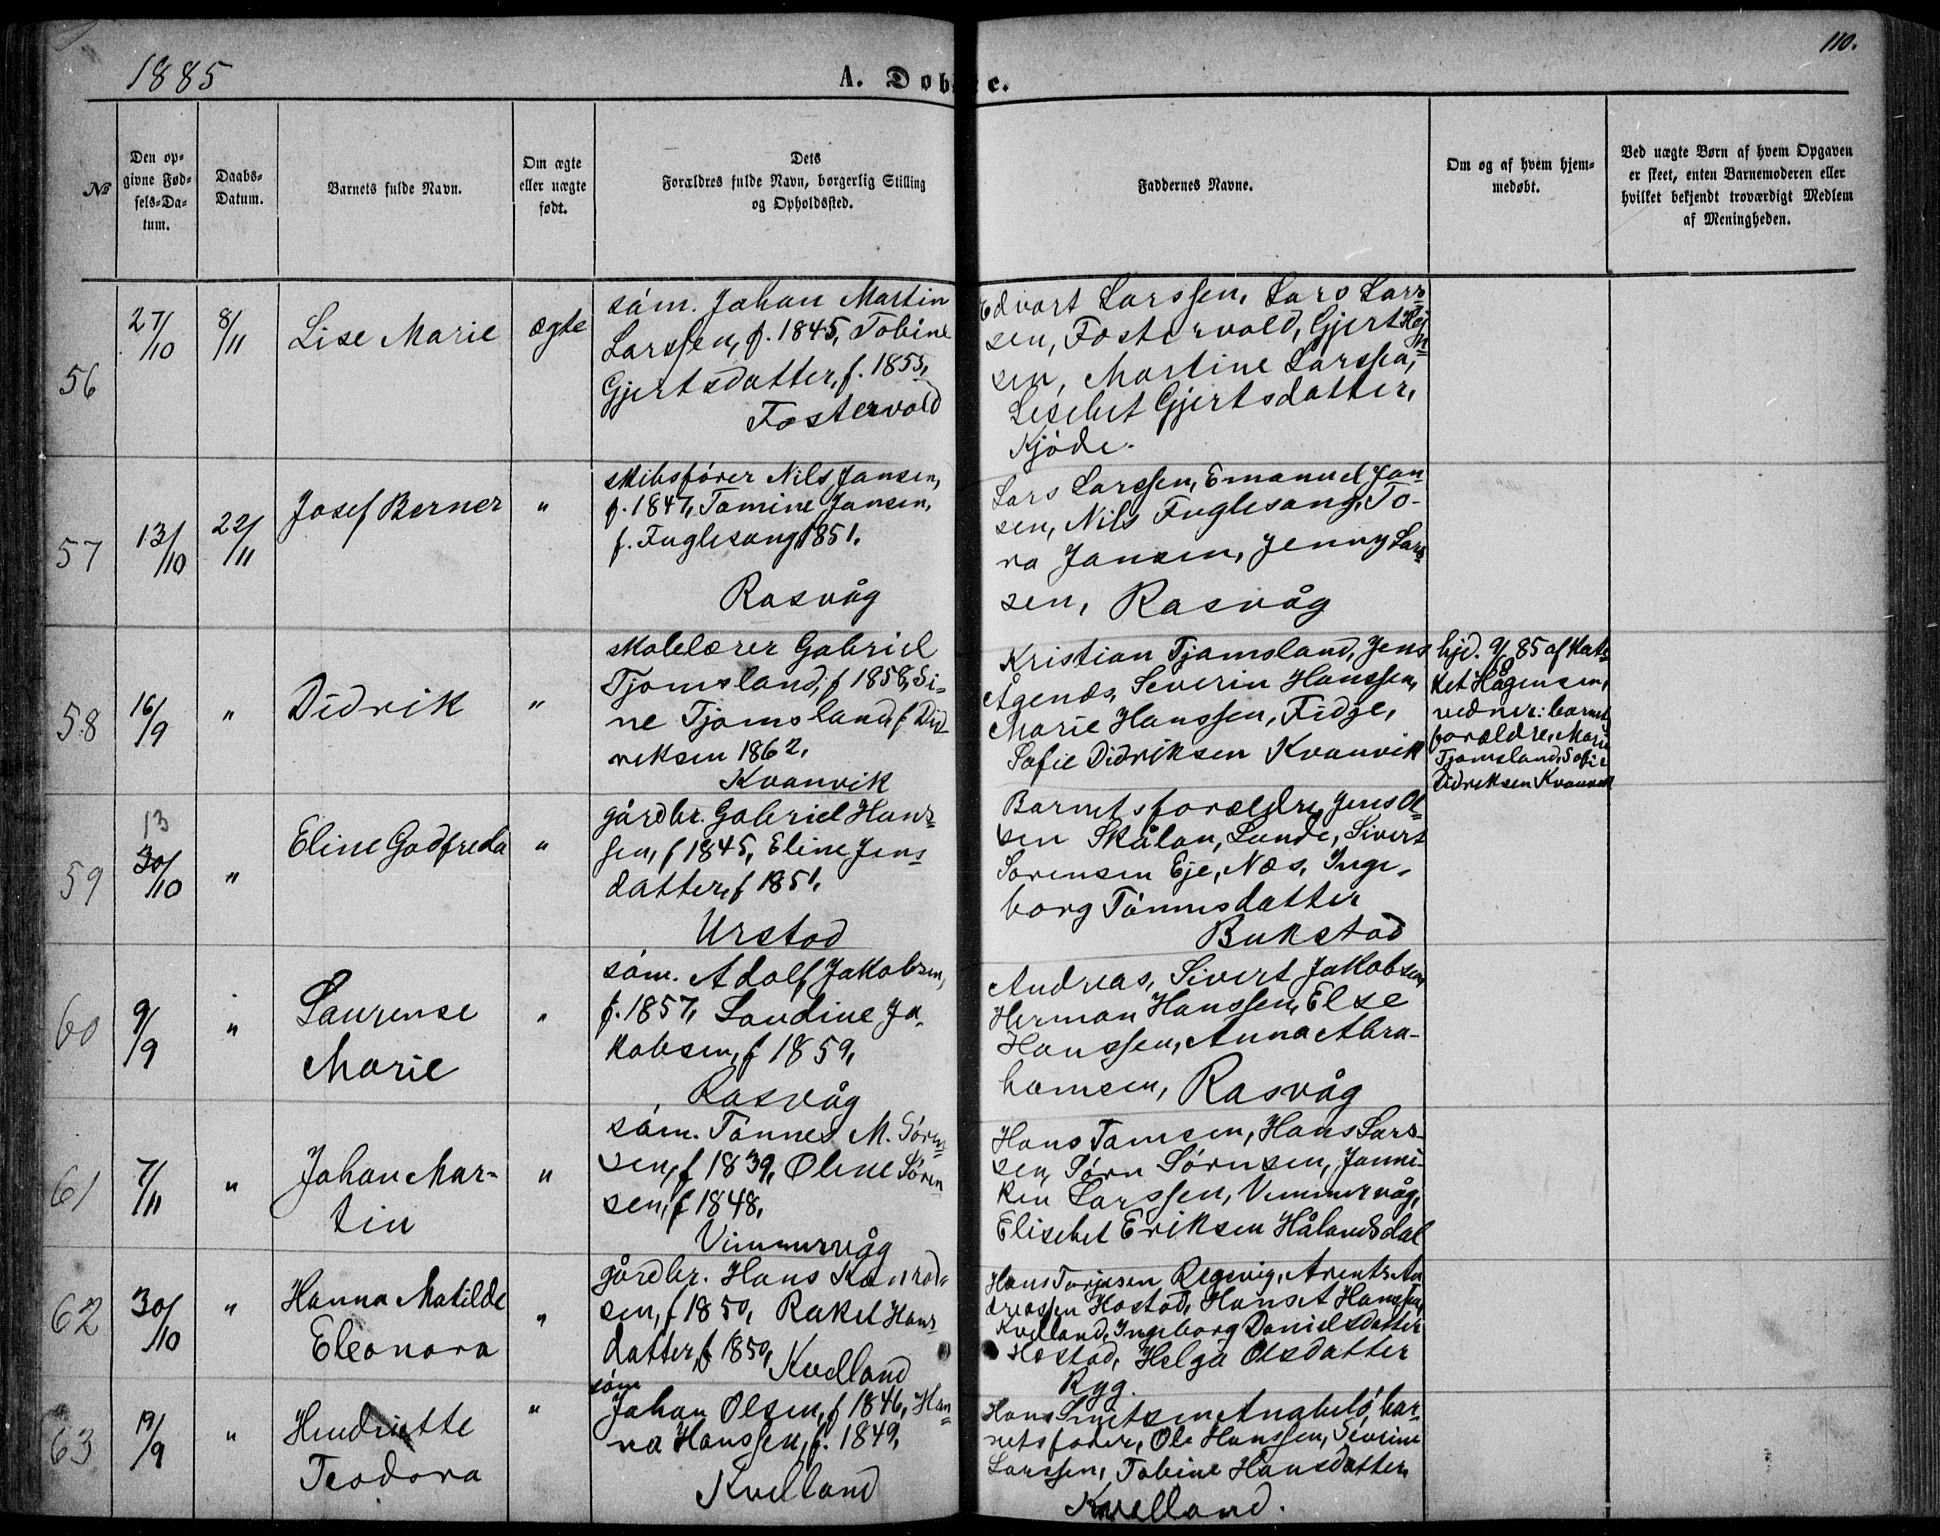 110.
1885
A. Døbte.
No
Den op-
givne Fød-
sels-Da-
tum.
Daabs-
Datum.
Barnets fulde Navn.
Om ægte
eller uægte
født.
Dets
Forældres fulde Navn, borgerlig Stilling
og Opholdssted.
Faddernes Navne.
Om og af hvem hjem-
medøbt.
Ved uægte Børn af hvem Opgaven
er skeet, enten Barnemoderen eller
hvilket bekjendt troværdigt Medlem
af Menigheden.
56
27/10
8/11
Lise Marie
ægte
söm. Johan Martin
Larssen, f. 1845, Tobine
Gjertsdatter, f. 1855,
Fostervold
Edvart Larssen, Lars Lars-
sen, Fostervold, Gjert
sen, Martine Larssen,
Lisebet Gjertsdatter,
Kjöde.
57
13/10
22/11
Josef Berner
"
skibsförer Nils Jansen,
f. 1847, Tomine Jansen,
f. Fuglesang 1851.
Rasvåg
Lars Larssen, Emanuel Jan-
sen, Nils Fuglesang, To-
ra Jansen, Jenny Lars-
sen, Rasvåg
58
16/9
"
Didrik
"
skolelærer Gabriel
Tjomsland, f 1858, Si-
ne Tjomsland, f Did-
riksen 1862,
Kvanvik
Kristian Tjomsland, Jens
Ågenæs, Severin Hanssen,
Marie Hanssen, Fidje,
Sofie Didriksen Kvanvik
hjd. 85 af Kate-
ket Hågensen,
vidner: barnets
forældre, Marie
Tjomsland, Sofie
Didriksen Kvanvik
59
13
30/10
"
Eline Godfreda
"
gårdbr. Gabriel Hans-
sen, f 1845, Eline Jens-
datter, f 1851,
Urstad
Barnets forældre, Jens Ol-
sen Skålan, Lunde, Sivert
Sörensen Eje, Næs, Inge-
borg Tönnesdatter
Bukstad
60
9/9
"
Laurense
Marie
"
söm. Adolf Jakobsen,
f. 1857, Lovdine Ja-
kobsen, f 1859,
Rasvåg
Andreas, Sivert Jakobsen,
Herman Hanssen, Else
Hanssen, Anna Abra-
hamsen, Rasvåg
61
7/11
"
Johan Mar-
tin
"
söm. Tönnes M. Sören-
sen, f 1839, Oline Sören-
sen, f 1848,
Vimmervåg
Hans Tomsen, Hans Lars-
sen, Sörn Sörnsen, Janni-
ken Larssen, Vimmervåg,
Elisebet Eriksen Hålandsdal
62
30/10
"
Hanna Matilde
Eleonora
"
gårdbr. Hans Konrad-
sen, f 1850, Rakel Hans-
datter, f 1850,
Kvelland
Hans Torjusen Regevig, Arents An-
dreassen Hostad, Hanset Hanssen,
Kvelland, Ingeborg Danielsdatter
Hostad, Helga Olsdatter
Ryg.
63
19/9
"
Hendriette
Teodora
"
söm
Johan Olsen, f 1846, Han-
na Hanssen, f. 1849,
Kvelland
Hans bar-
netsfader, Ole Hanssen, Severine
Larssen, Tobine Hansdatter,
Kvelland.